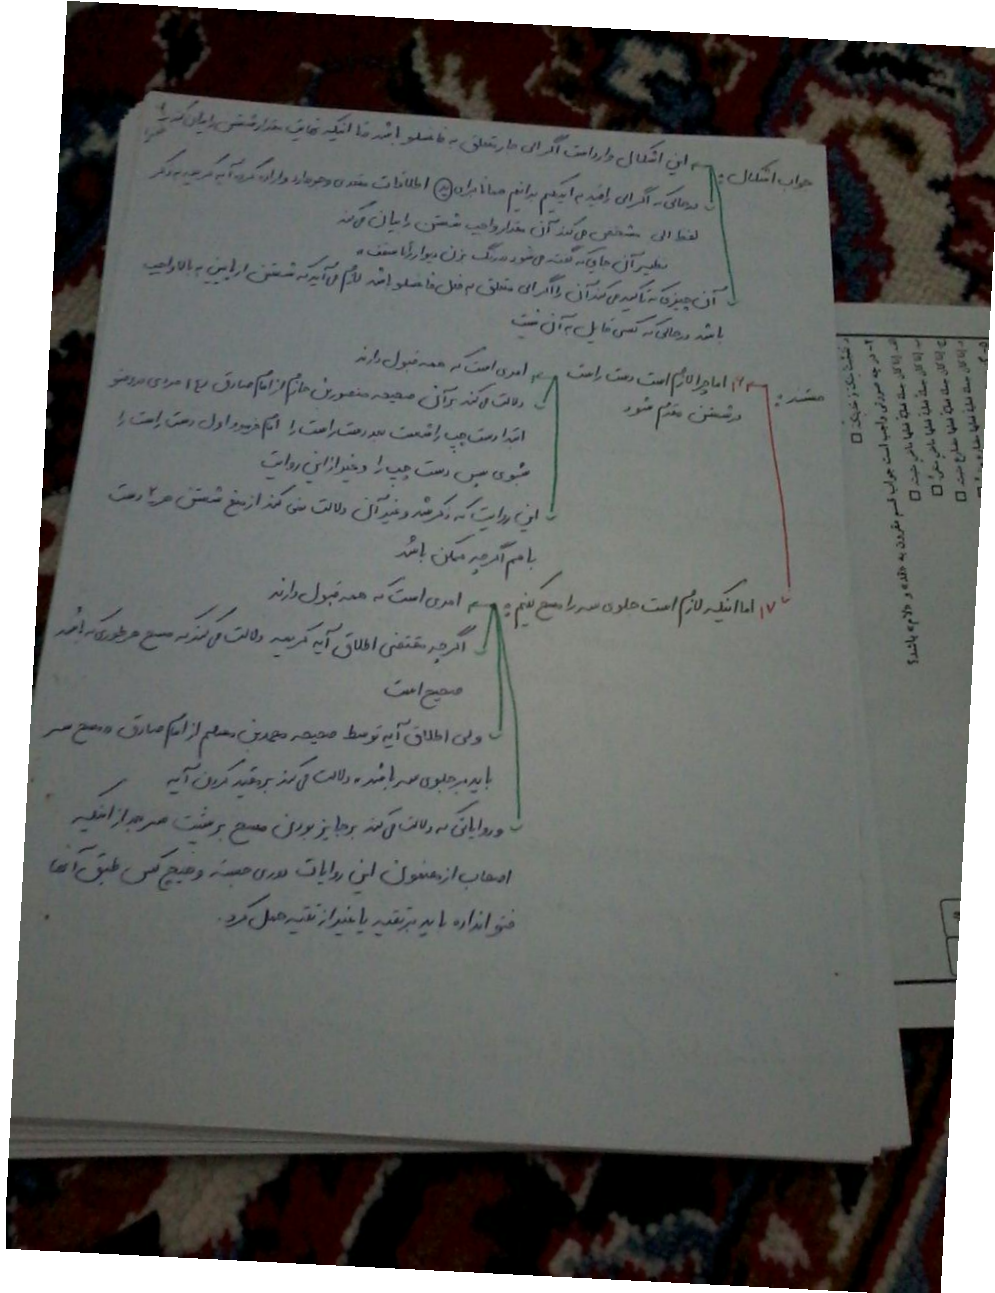 جواب اشکال:
این اشکال وارد است اگر الی جار متعلق به فاغسلو باشد تا اینکه نهایت مقدار شستن را بیان کند
در حالی که اگر الی را قید به ایدیکم بدانیم همانا برای ید اطلاقات متعددی وجود دارد و اراده کرده آیه کریمه به ذکر
لفظ الی مشخص می‌کند آن مقدار واجب شستن را بیان می‌کند
نظیر آن جایی که گفته می‌شود رنگ بزن دیوار را تا سقف
آن چیزی که تاکید می‌کند آن را اگر الی متعلق به فعل فاغسلو باشد لازم می‌آید که شستن از پایین به بالا واجب
باشد در حالی که کسی قایل به آن نیست
مستند:
اما چرا لازم است دست راست
در شستن مقدم شود
امری است که همه قبول دارند
دلالت می‌کند بر آن صحیحه منصور بن حازم از امام صادق (ع) مردی در وضو
ابتدا دست چپ را شست بعد دست راست را امام فرمود اول دست راست را
بشوی سپس دست چپ را و غیر از این روایت
این روایت که ذکر شد و غیر آن دلالت نمی کند از منع شستن هر ۲ دست
با هم اگرچه ممکن باشد
۱۷ اما اینکه لازم است جلوی سر را مسح کنیم:
امری است که همه قبول دارند
اگرچه مقتضی اطلاق آیه کریمه دلالت می‌کند که مسح هر طوری که باشد
صحیح است
ولی اطلاق آیه توسط صحیحه محمد بن مسلم از امام صادق «مسح سر
باید بر جلوی سر باشد» دلالت می‌کند بر مقید کردن آیه
و روایاتی که دلالت می‌کند بر جایز بودن مسح بر پشت سر جدا از اینکه
اصحاب از مضمون این روایات دوری جسته و هیچ کس طبق آنها
فتوا نداده باید بر تقیه یا غیر از تقیه حمل کرد.
۲- در چه صورتی واجب است جواب قسم مقرون به «قد» و «لام» باشد؟